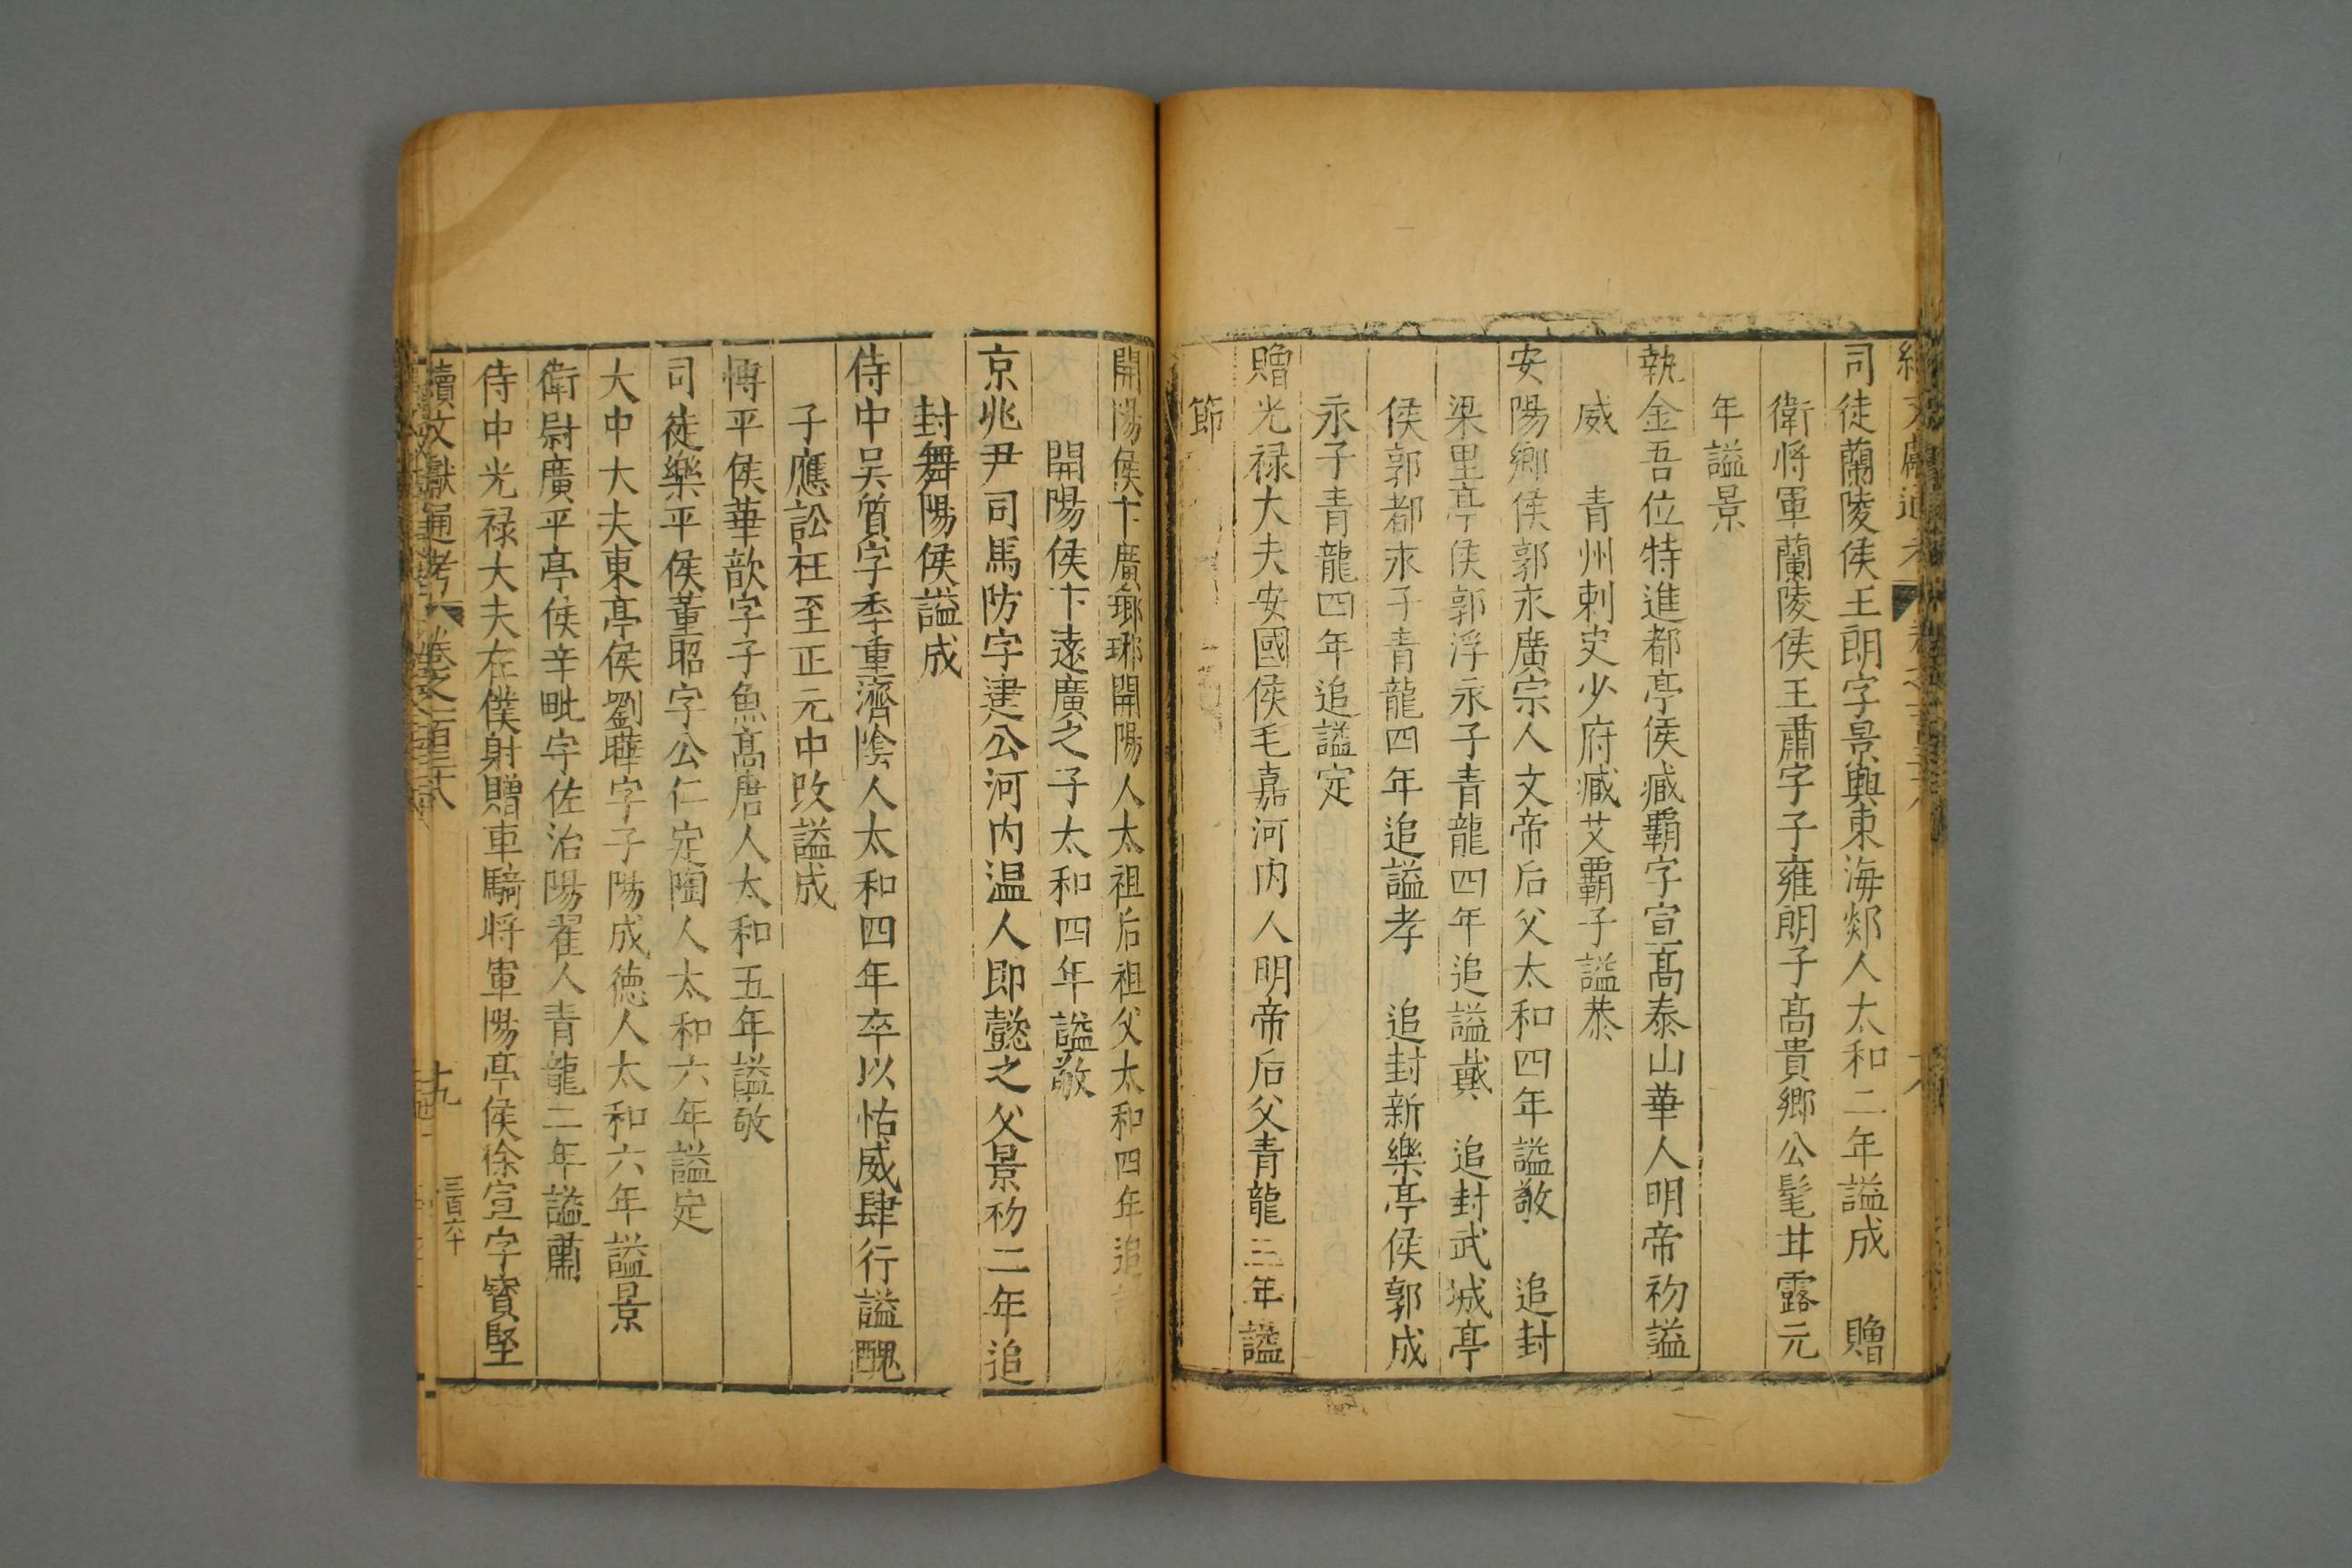 司徒蘭陵侯王朗字景興東海郯人太和二年謚成　贈
衛將軍蘭陵侯王肅字子雍朗子髙貴郷公髦甘露元
年謚景
執金吾位特進都亭侯臧霸字宣髙泰山華人明帝初謚
威　青州刺史少府臧艾霸子謚恭
安陽郷侯郭永廣宗人文帝后父太和四年謚敬　追封
梁里亭侯郭浮永子青龍四年追謚戴　追封武城亭
侯郭都永子青龍四年追謚孝　追封新樂亭侯郭成
永子青龍四年追謚定
贈光禄大夫安國侯毛嘉河内人明帝后父青龍三年謚
節
開陽侯卞廣瑯琊開陽人太祖后祖父太和四年追
開陽侯卞遠廣之子太和四年謚敬
京兆尹司馬防字建公河内温人即懿之父景初二年追
封舞陽侯謚成
侍中吴質字季重濟隂人太和四年卒以怙威肆行謚醜
子應訟枉至正元中改謚成
博平侯華歆字子魚髙唐人太和五年謚敬
司徒樂平侯董昭字公仁定陶人太和六年謚定
大中大夫東亭侯劉曄字子陽成徳人太和六年謚景
衛尉廣平亭侯辛毗字佐治陽翟人青龍二年謚肅
侍中光禄大夫左僕射贈車騎將軍陽亭侯徐宣字寳堅
續文獻通考　卷之一百三十八
十九
三百六十